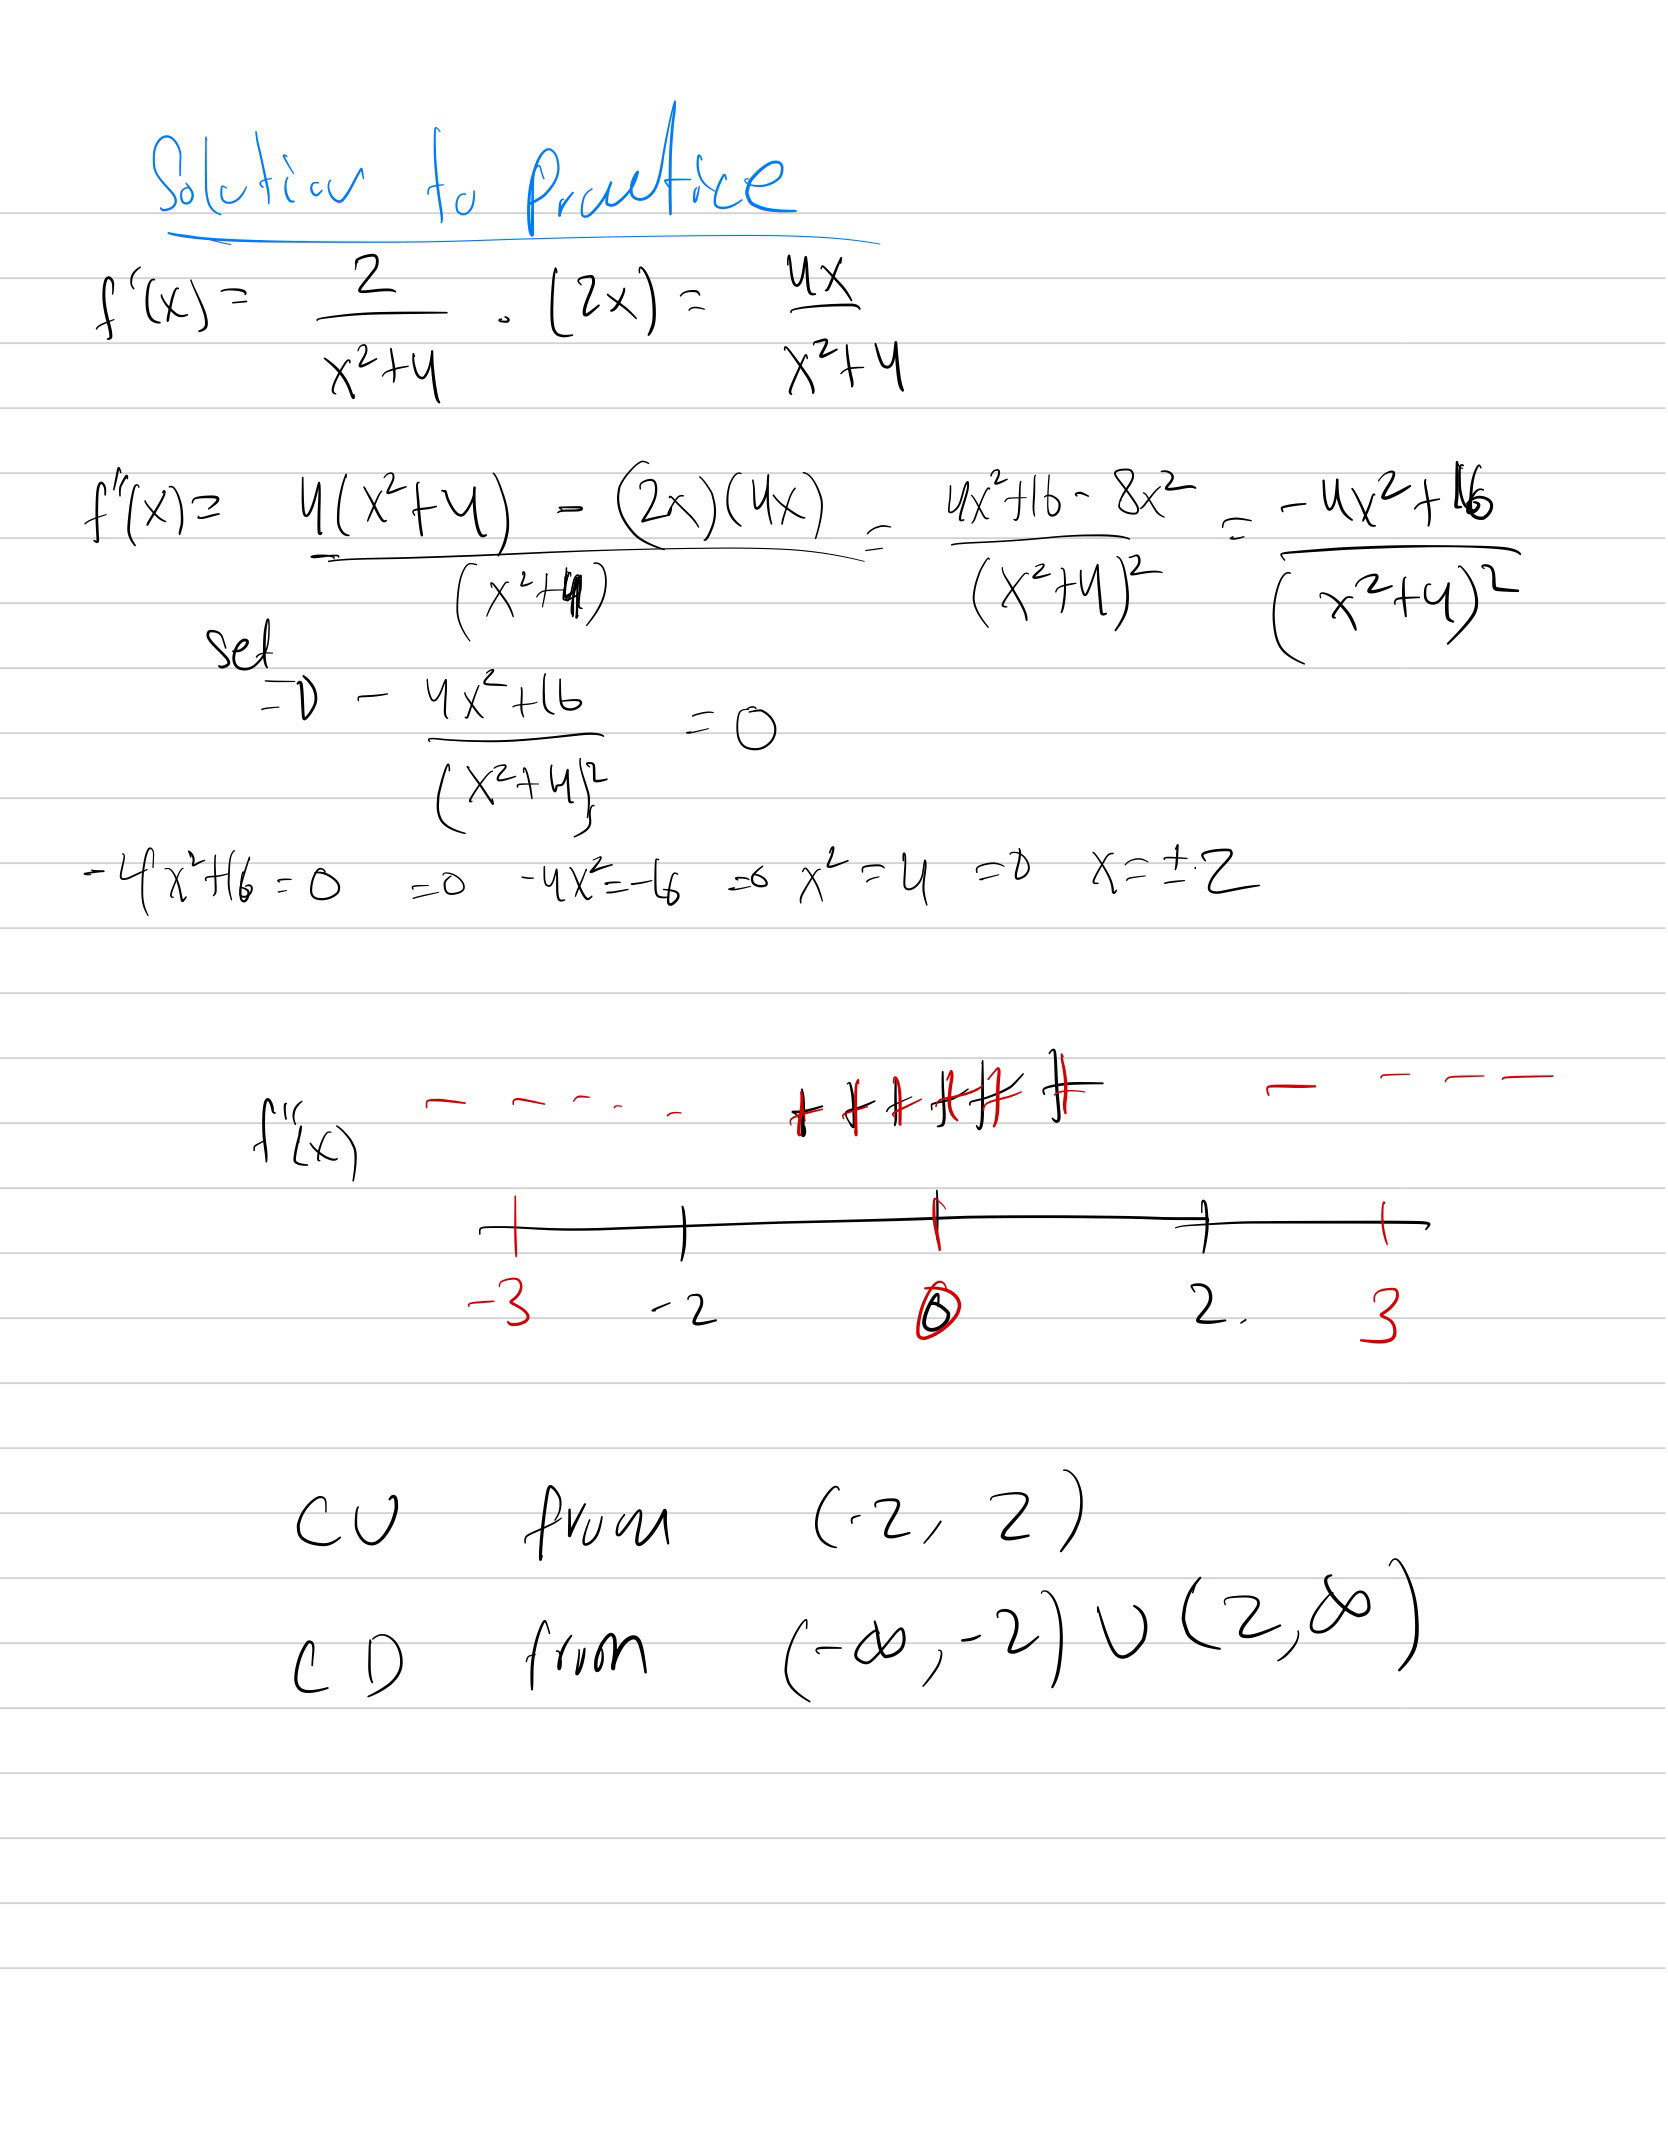 Solution to Practice
f'(x) = 2/(x²+4) · (2x) = 4x/(x²+4)
f''(x) = (4(x²+4) - (2x)(4x))/(x²+4) = (4x²+16 - 8x²)/(x²+4)² = (-4x²+16)/(x²+4)²
set
⇒ (-4x²+16)/(x²+4)² = 0
-4x²+16 = 0 ⇒ -4x² = -16 ⇒ x² = 4 ⇒ x = ±2
f''(x) - - - - - + + + + + + - - - -
-3 -2 0 2 3
CU from (-2, 2)
CD from (-∞, -2) ∪ (2, ∞)